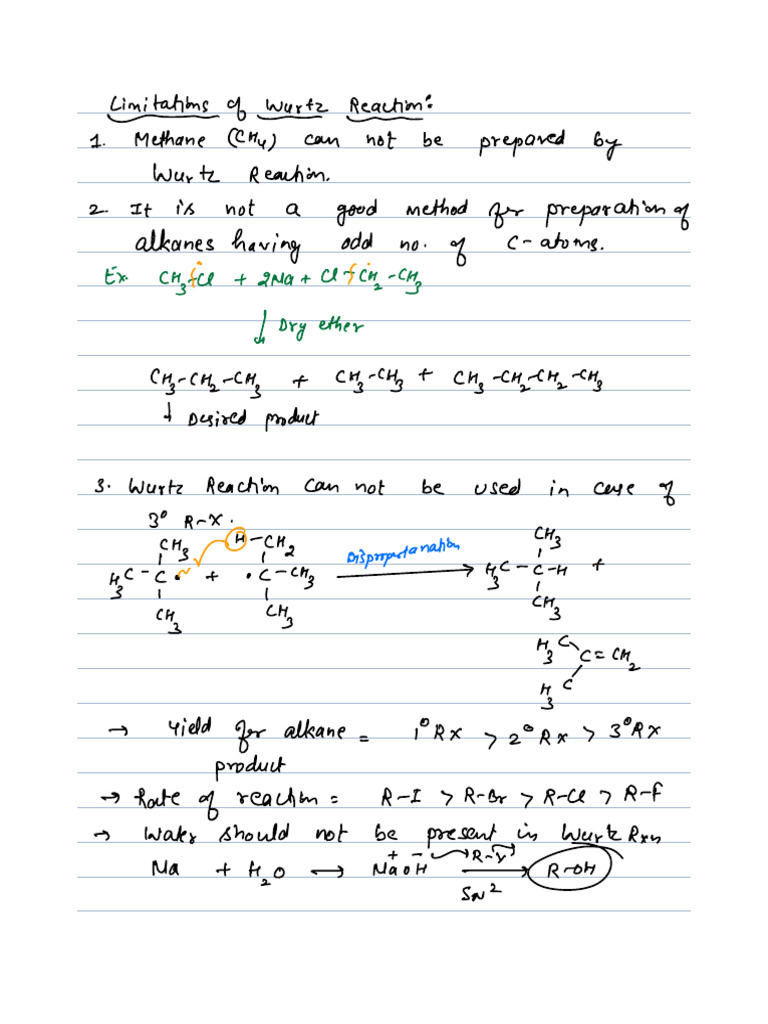 Limitations of Wurtz Reaction:
1. Methane (CH4) can not be prepared by
Wurtz Reaction.
2. It is not a good method for preparation of
alkanes having odd no. of C-atoms.
Ex. CH3-Cl + 2Na + Cl-CH2-CH3
↓ Dry ether
CH3-CH2-CH3 + CH3-CH3 + CH3-CH2-CH2-CH3
↓ Desired product
3. Wurtz Reaction can not be used in case of
3° R-X.
CH3 H-CH2 Disproportanation CH3
H3C-C• + •C-CH3 → H3C-C-H +
CH3 CH3 CH3
H3C
C=CH2
H3C
→ Yield for alkane = 1° RX > 2° RX > 3° RX
product
→ Rate of reaction = R-I > R-Br > R-Cl > R-F
→ Water should not be present in Wurtz Rxn
Na + H2O → Na+OH- R-X → R-OH
SN2